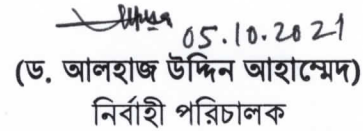 05.10.2021
(ড. আলহাজ উদ্দিন আহাম্মেদ)
নির্বাহী পরিচালক